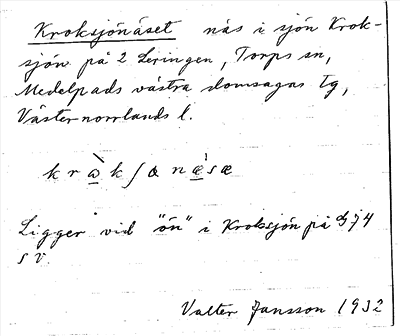 Kroksjönäset näs i sjön Krok-
sjön på 2 Leringen, Torps sn,
Medelpads västra domsagas tg,
Västernorrlands l.
Ligger vid "ön" i Kroksjön på
s v.
Valter Jansson 1932